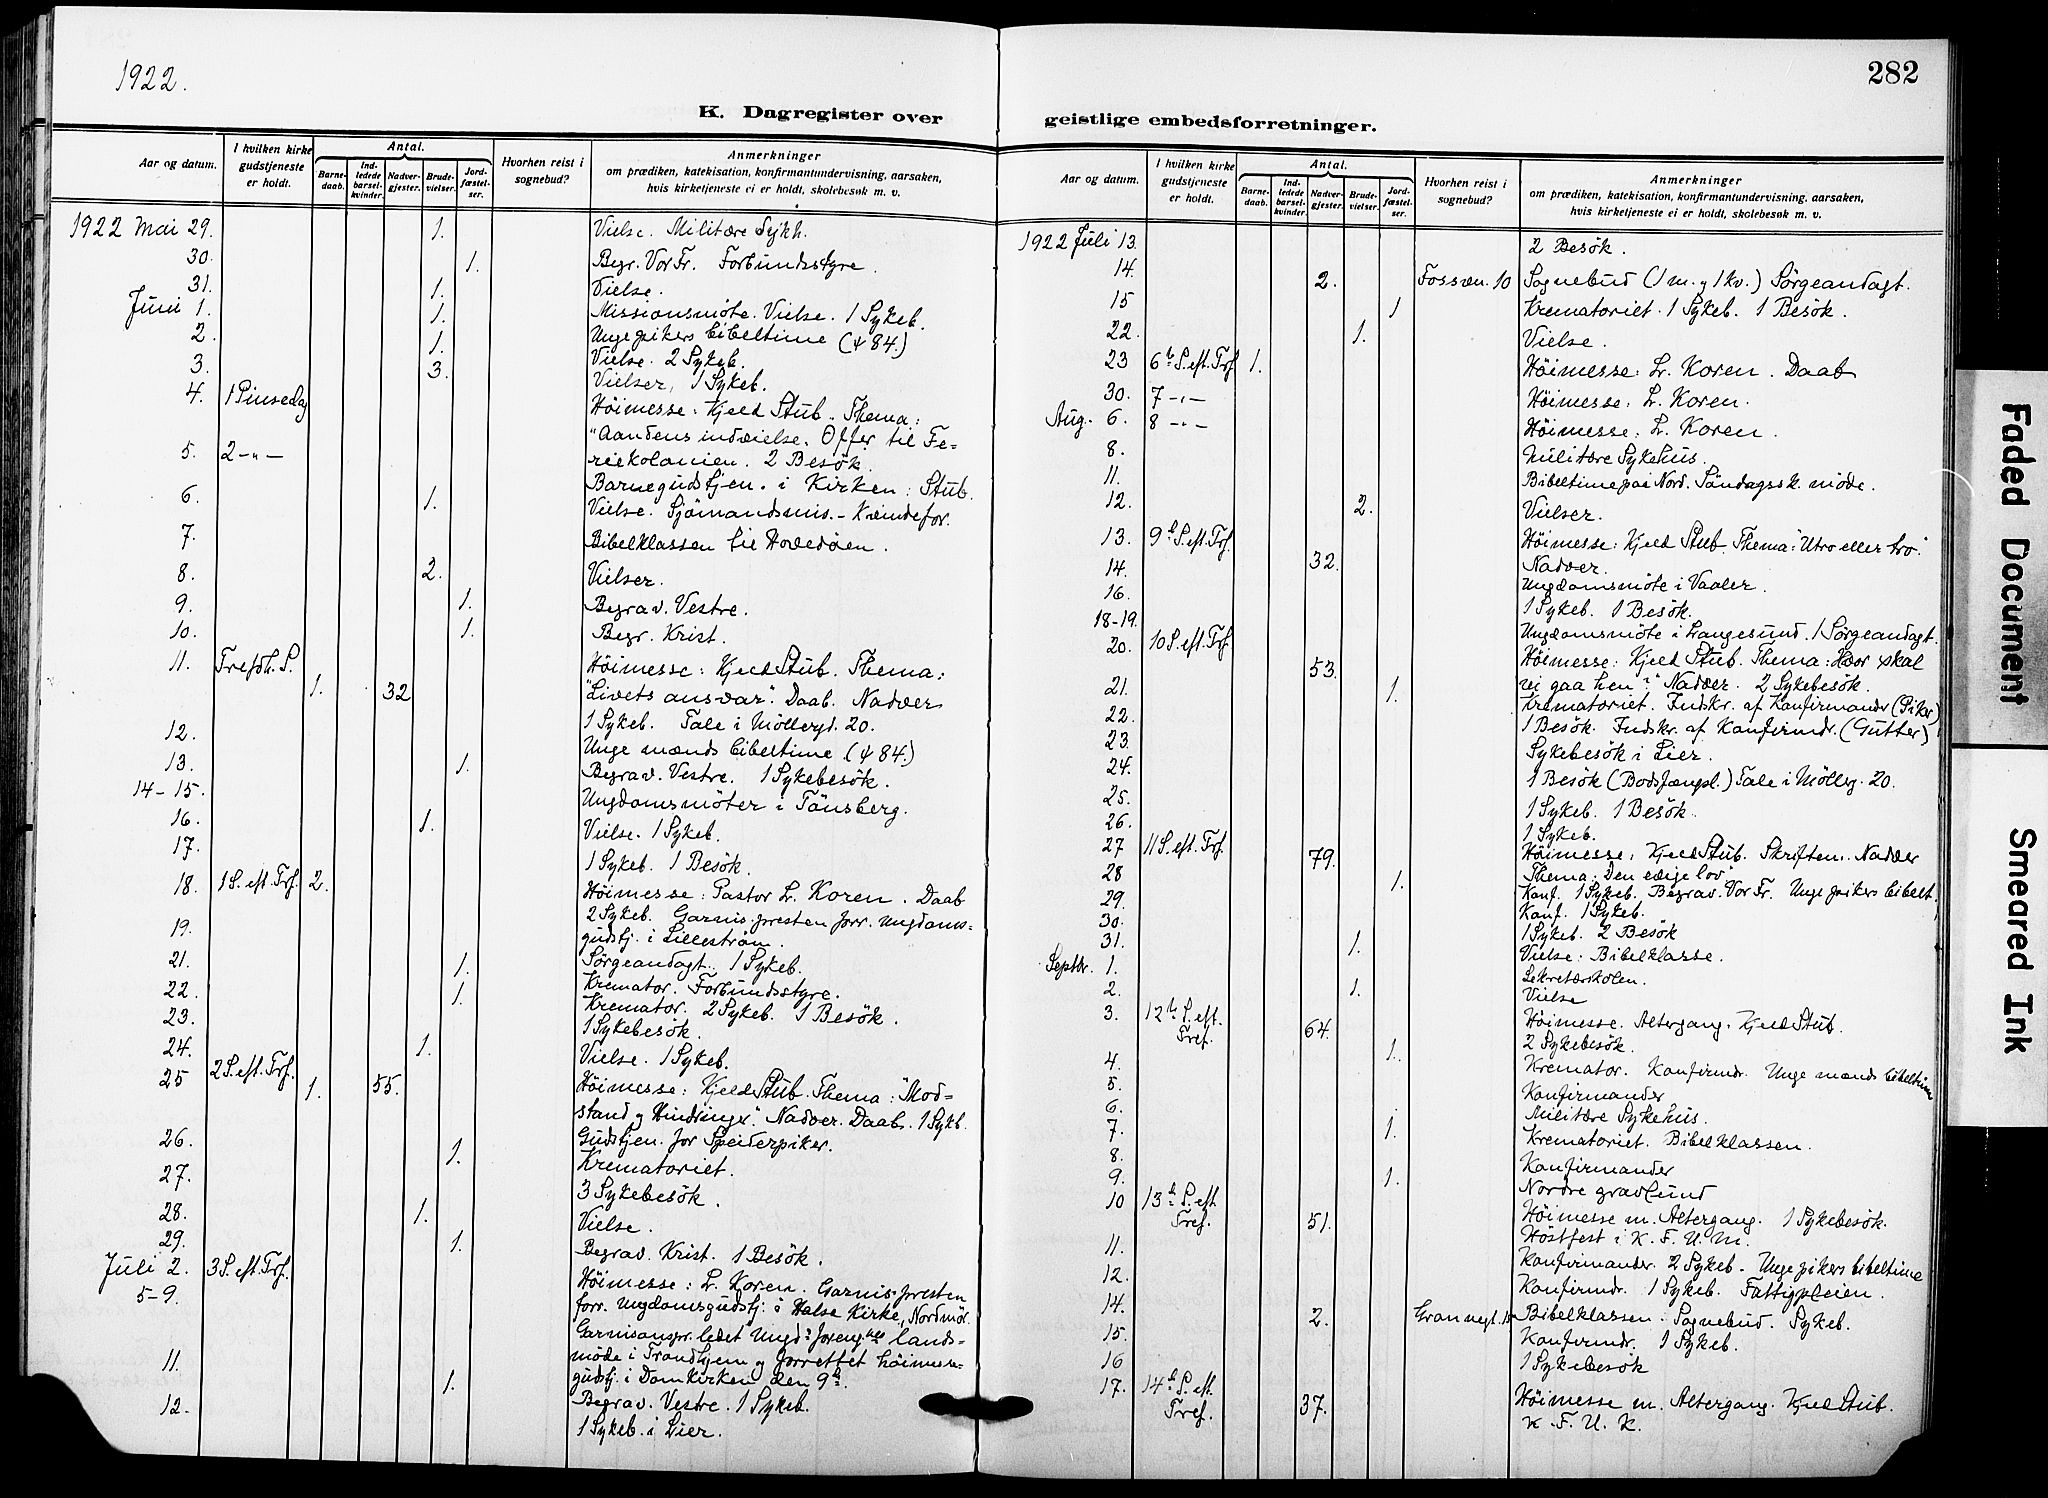 1922.
282
K. Dagregister over geistlige embedsforretninger.
Aar og datum.
I hvilken kirke gudstjeneste er holdt.
Antal.
Barnedaab.
Indledede barselkvinder.
Nadvergjester.
Brudevielser.
Jordfæstelser.
Hvorhen reist i sognebud?
Anmerkninger
om prædiken, katekisation, konfirmantundervisning, aarsaken,
hvis kirketjeneste ei er holdt, skolebesøk m. v.
1922 Mai 29. 1. Vielse. Militære Sykh.
30. 1. Begr. Vor Fr. Forbundsstyre.
31. 1. Vielse.
Juni 1. 1. Missionsmöte. Vielse. 1 Sykeb.
2. 1. Unge pikers bibeltime (ψ 84.)
3. 3. Vielse. 2 Sykeb.
Vielser, 1 Sykeb.
4. 1 Pinsedag Höimesse: Kjeld Stub. Thema:
"Aandens indvielse. Offer til Fe-
5. 2 -"- riekolonien. 2 Besök.
Barnegudstjen. i Kirken: Stub.
6. 1. Vielse. Sjömandsmis. - Kvindefor.
7. Bibelklassen til Hovedöen.
8. 2. Vielser.
9. 1. Begrav. Vestre.
10. 1. Begr. Krist.
11. Trefoh. S. Höimesse: Kjeld Stub. Thema:
1. 32 "Livets ansvar". Daab. Nadver
1 Sykeb. Tale i Möllergd. 20.
12. Unge mænds bibeltime (ψ 84.)
13. 1. Begrav. Vestre. 1 Sykebesök.
14-15. Ungdomsmöter i Tönsberg.
16. 1. Vielse. 1 Sykeb.
17. 1 Sykeb. 1 Besök.
18. 1 S. eft. Trf. 2. Höimesse: Pastor L. Koren. Daab
2 Sykeb. Garnis.presten forr. Ungdoms-
19. gudstj. i Lilleström.
21. 1. Sörgeandagt. 1 Sykeb.
22. 1. Kremator. Forbundsstyre.
23. Kremator. 2 Sykeb. 1 Besök.
1 Sykebesök.
24. 1. Vielse. 1 Sykeb.
25 2 S. eft. Trf. 1. 55. Höimesse: Kjeld Stub. Thema: "Mod-
stand og Hindringer". Nadver. Daab. 1 Sykb.
26. Gudstjen. for Speiderpiker.
1. Krematoriet.
27. 3 Sykebesök.
28. 1. Vielse.
29. 1. Begrav. Krist. 1 Besök.
Juli 2. 3 S. eft. Trf. Höimesse: L. Koren. Garnis.presten
5-9. forr. Ungdomsgudstj. i Halse Kirke, Nordmör.
Garnisonspr. ledet Ungd.s foreng.nes lands-
möde i Trondhjem og forrettet höimesse-
11. 1. gudstj. i Domkirken den 9de.
12. Begrav. Vestre. 1 Sykeb.
1 Sykeb. i Lier.
Aar og datum.
I hvilken kirke gudstjeneste er holdt.
Antal.
Barnedaab.
Indledede barselkvinder.
Nadvergjester.
Brudevielser.
Jordfæstelser.
Hvorhen reist i sognebud?
Anmerkninger
om prædiken, katekisation, konfirmantundervisning, aarsaken,
hvis kirketjeneste ei er holdt, skolebesøk m. v.
1922 Juli 13. 2 Besök.
14. 2. Fossvn. 10 Sognebud (1 m. og 1 kv.) Sörgeandagt.
15 1 Krematoriet. 1 Sykeb. 1 Besök.
22. 1. Vielse.
23 6te S. eft. Trf 1. Höimesse: L. Koren. Daab
30. 7 -"- Höimesse: L. Koren.
Aug. 6. 8 -"- Höimesse: L. Koren.
8. Militære Sykehus.
11. Bibeltime paa Nord. Söndagssk. möde.
12. 2. Vielser.
13. 9de S. eft. Trf. 32. Höimesse: Kjeld Stub. Thema: "Utro eller tro".
Nadver.
14. Ungdomsmöte i Vaaler.
16. 1 Sykeb. 1 Besök.
18-19. Ungdomsmöte i Langesund. 1 Sörgeandagt.
20. 10 S. eft. Trf. 53. Höimesse: Kjeld Stub. Thema: Hvor skal
vi gaa hen?" Nadver. 2 Sykebesök.
21. 1. Krematoriet. Indskr. af Konfirmander (Piker)
22. 1 Besök. Indskr. af Konfirmdr. (Gutter)
23. Sykebesök i Lier.
24. 1 Besök (Bodsfængsl.) Tale i Möllerg. 20.
25. 1 Sykeb. 1 Besök.
26. 1 Sykeb.
27 11 S. eft. Trf. 79. Höimesse: Kjeld Stub. Skriftem. Nadver
Thema: Den evige lov
28 1. Konf. 1 Sykeb. Begrav. Vor Fr. Unge pikers bibelt.
29. Konf. 1 Sykeb.
30. 1 Sykeb. 2 Besök
31. 1. Vielse: Bibelklasse.
Septbr. 1. Sekretærskolen.
2. 1. Vielse
3. 12te S. eft. Tref. 64. Höimesse. Altergang. Kjeld Stub.
2 Sykebesök.
4. 1. Kremator. Konfirmdr. Unge mænds bibeltime
5. Konfirmander
6. Militære Sykehus.
7. 1. Krematoriet. Bibelklassen.
8. Konfirmander
9. 1. Nordre gravlund
10 13de S. eft. Tref. 51. Höimesse m. Altergang. 1 Sykebesök.
Höstfest i K. F. U. M.
11. Konfirmander. 2 Sykeb. - Unge pikers bibeltime
12. Konfirmdr. 1 Sykeb. Fattigpleien.
14. 2. Bibelklassen. Sognebud. Sykeb.
15. Konfirmdr. 1 Sykeb.
16 1 Sykebesök
17. 14de S. eft. Tref. 37. Höimesse m. Altergang. Kjeld Stub.
K. F. U. K.
Faded Document
Smeared Ink